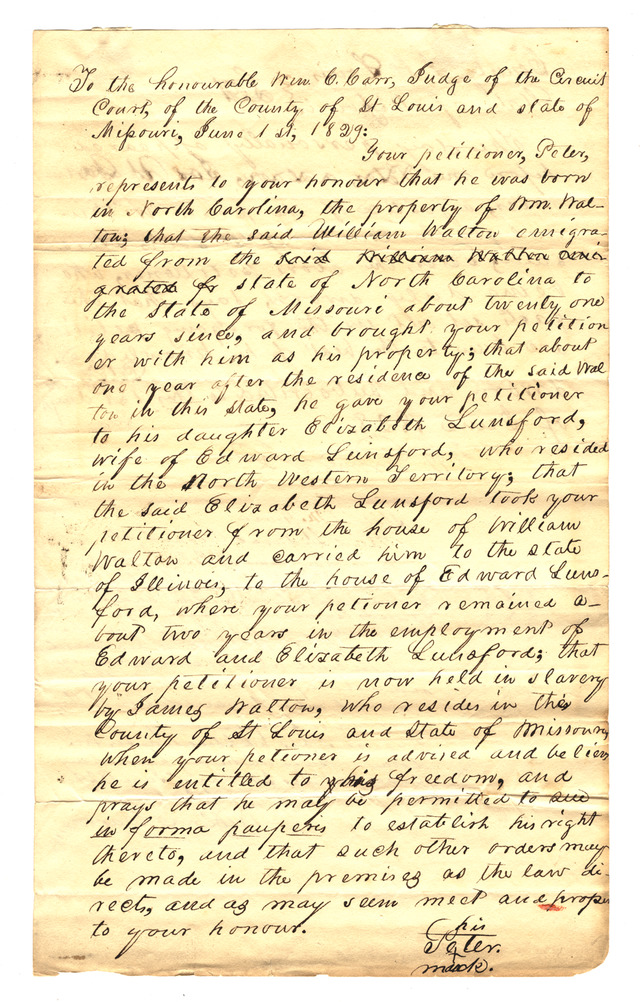 To the honourable Wm. C. Carr, Judge of the Circuit
Court, of the County of St Louis and state of
Missouri, June 1st, 1829:
Your petitioner, Peter,
represents to your honour that he was born
in North Carolina, the property of Wm. Wal-
ton; that the said William Walton emigra-
ted from the said William Walton emi-
grated fr state of North Carolina to
the State of Missouri about twenty one
years since, and brought your petition
er with him as his property; that about
one year after the residence of the said Wal
ton in this state, he gave your petitioner
to his daughter Elizabeth Lunsford,
wife of Edward Lunsford, who resided
in the North Western Territory; that
the said Elizabeth Lunsford took your
petitioner from the house of William
Walton and carried him to the state
of Illinois, to the house of Edward Luns-
ford, where your petioner remained a-
bout two years in the employment of
Edward and Elizabeth Lunsford; that
your petitioner is now held in slavery
by James Walton, who resides in the
County of St Louis and State of Missouri,
when your petioner is advised and believes
he is entitled to his freedom, and
prays that he may be permitted to sue
in forma pauperis to establish his right
thereto, and that such other orders may
be made in the premises as the law di-
rects, and as may seem meet and proper
to your honour.
his
Peter.
mark.